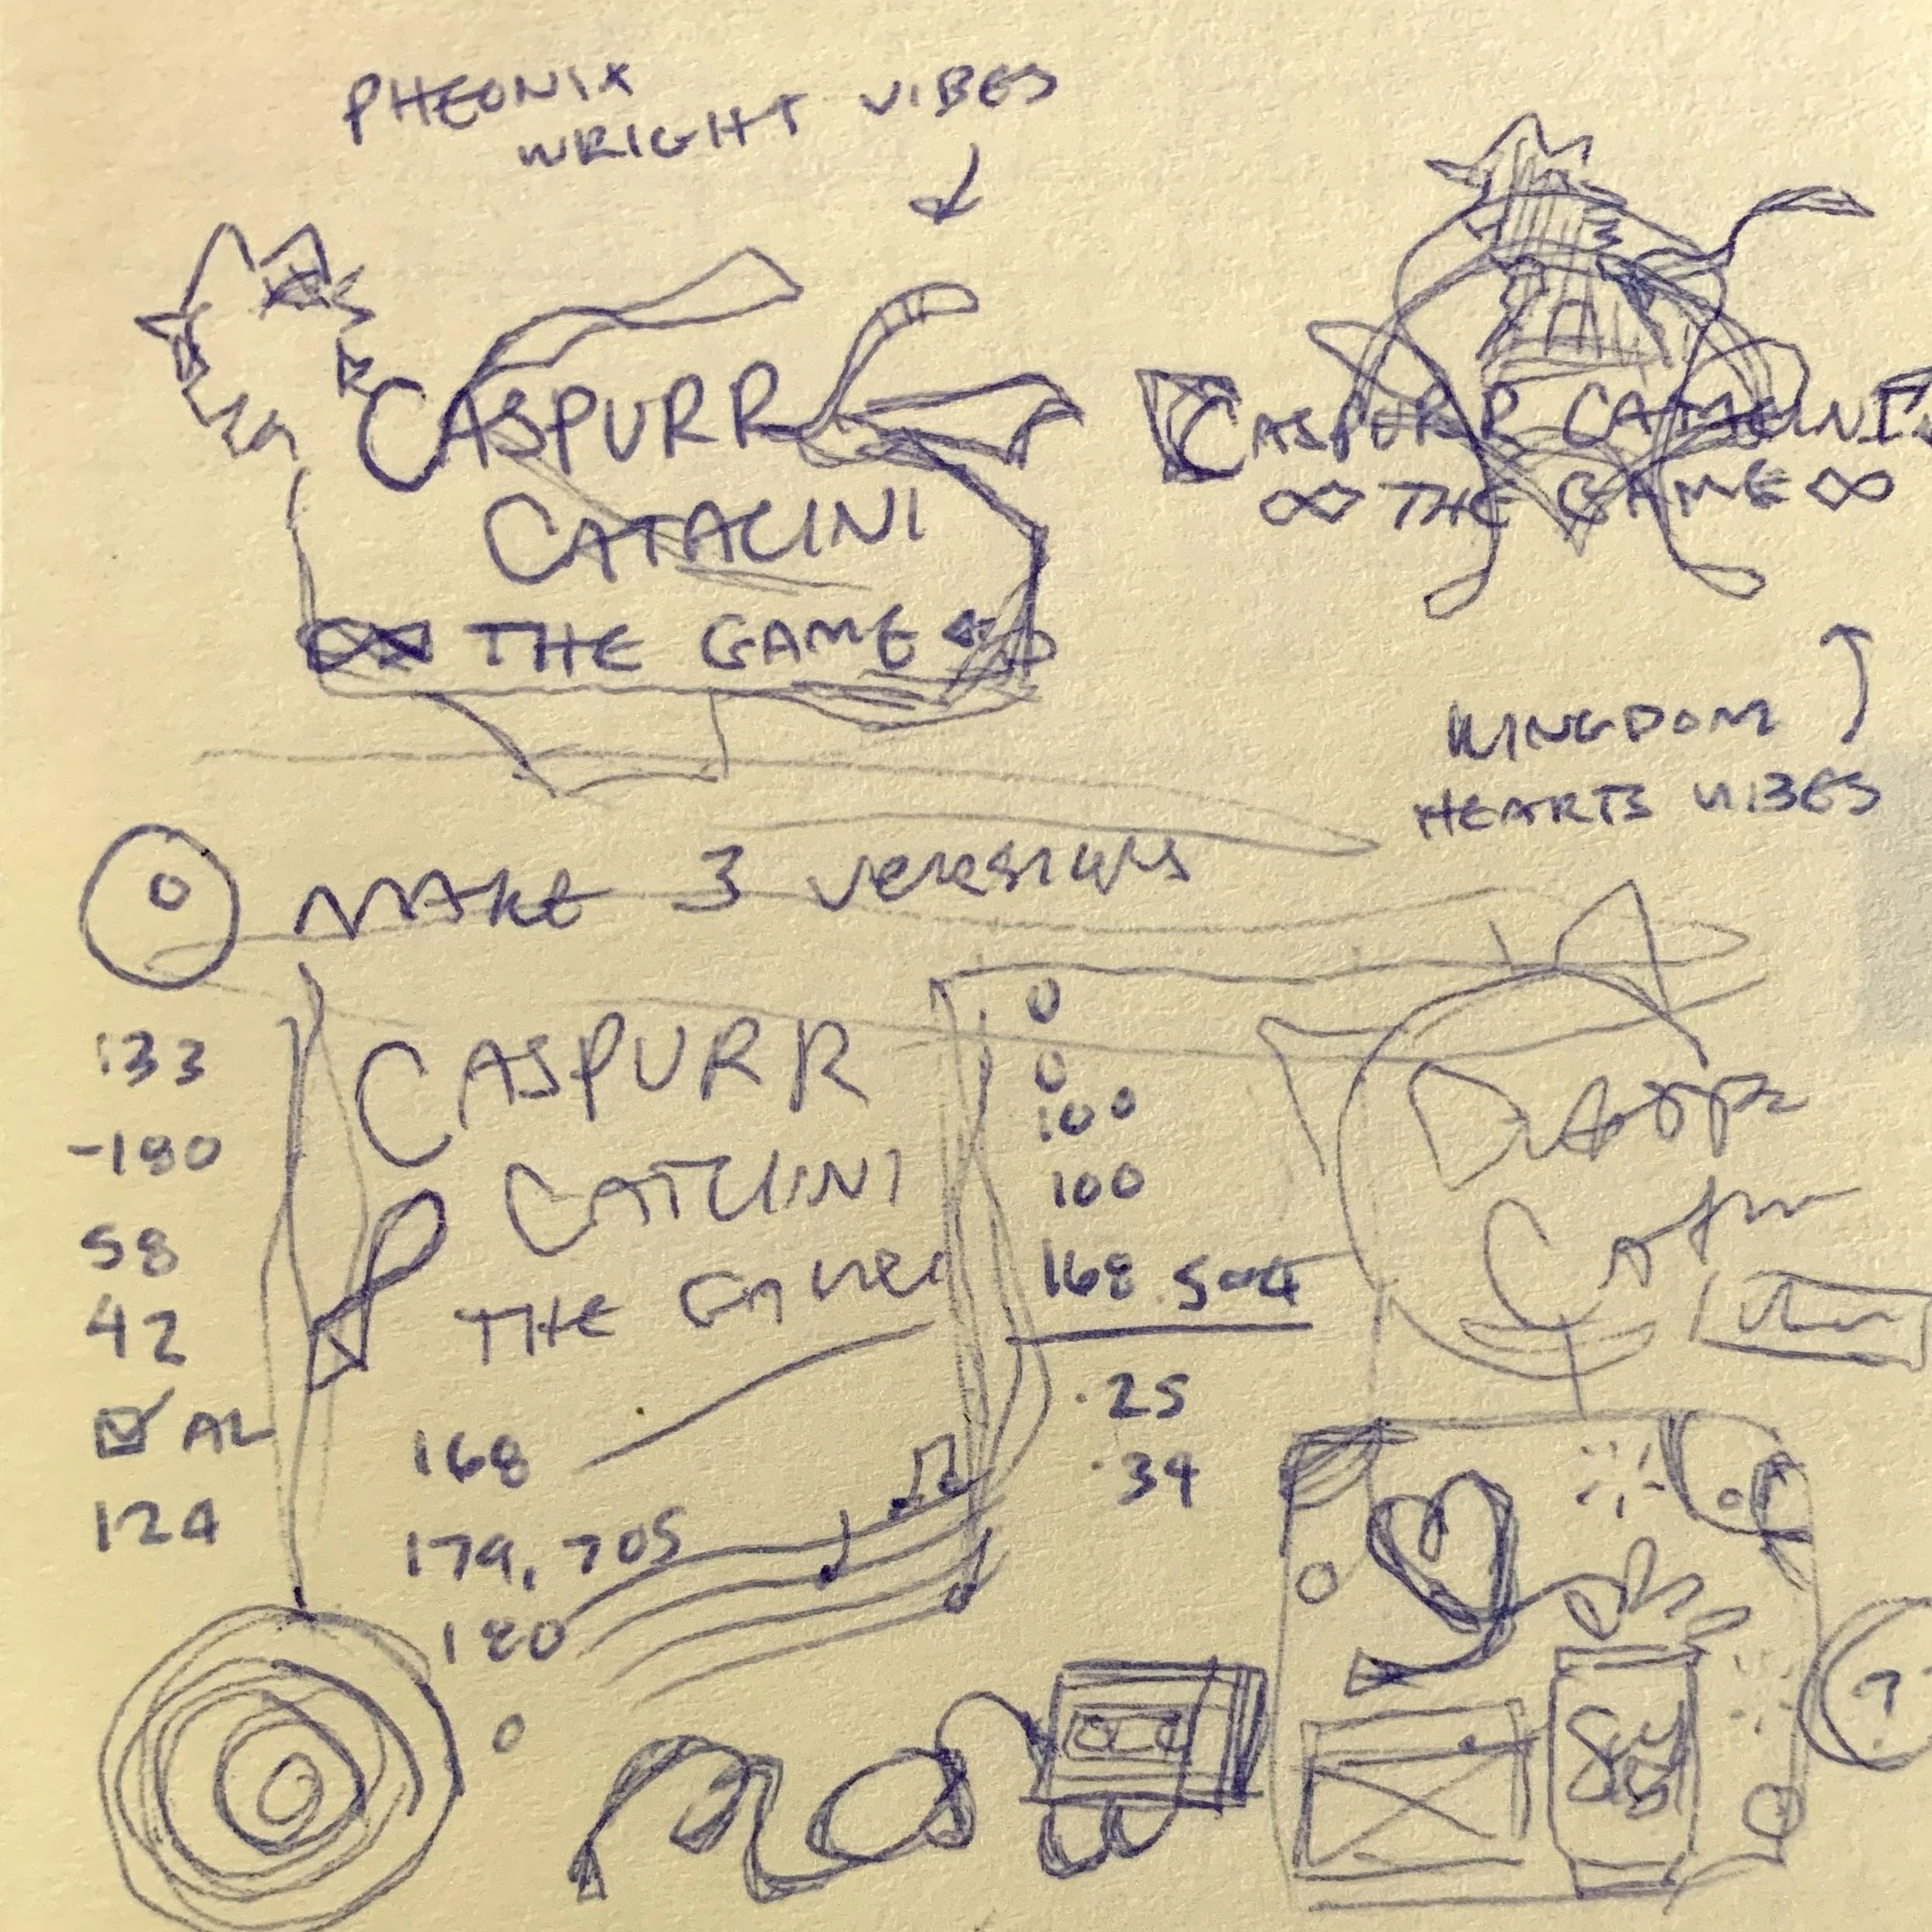 PHEONIX
WRIGHT VIBES
CASPURR
CATALINI
∞ THE GAME
CASPURR CATALINI
∞ THE GAME ∞
KINGDOM
HEARTS VIBES
0 MAKE 3 VERSIONS
133
-180
58
42
☑ AL
124
CASPURR
CATLINI
THE GAME
168
179.705
180
0
0
0
100
100
168.504
.25
.34
?